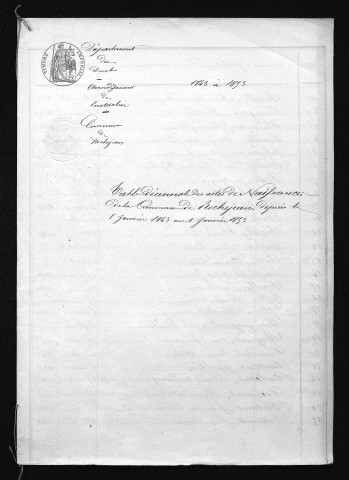 Département
du
Doubs
Arrondissement
de
Pontarlier
Commune
de
Rochejean
1843 à 1853
Table Décennale des actes de Naissances
de la Commune de Rochejean, depuis le
1 Janvier 1843 au 1 Janvier 1853